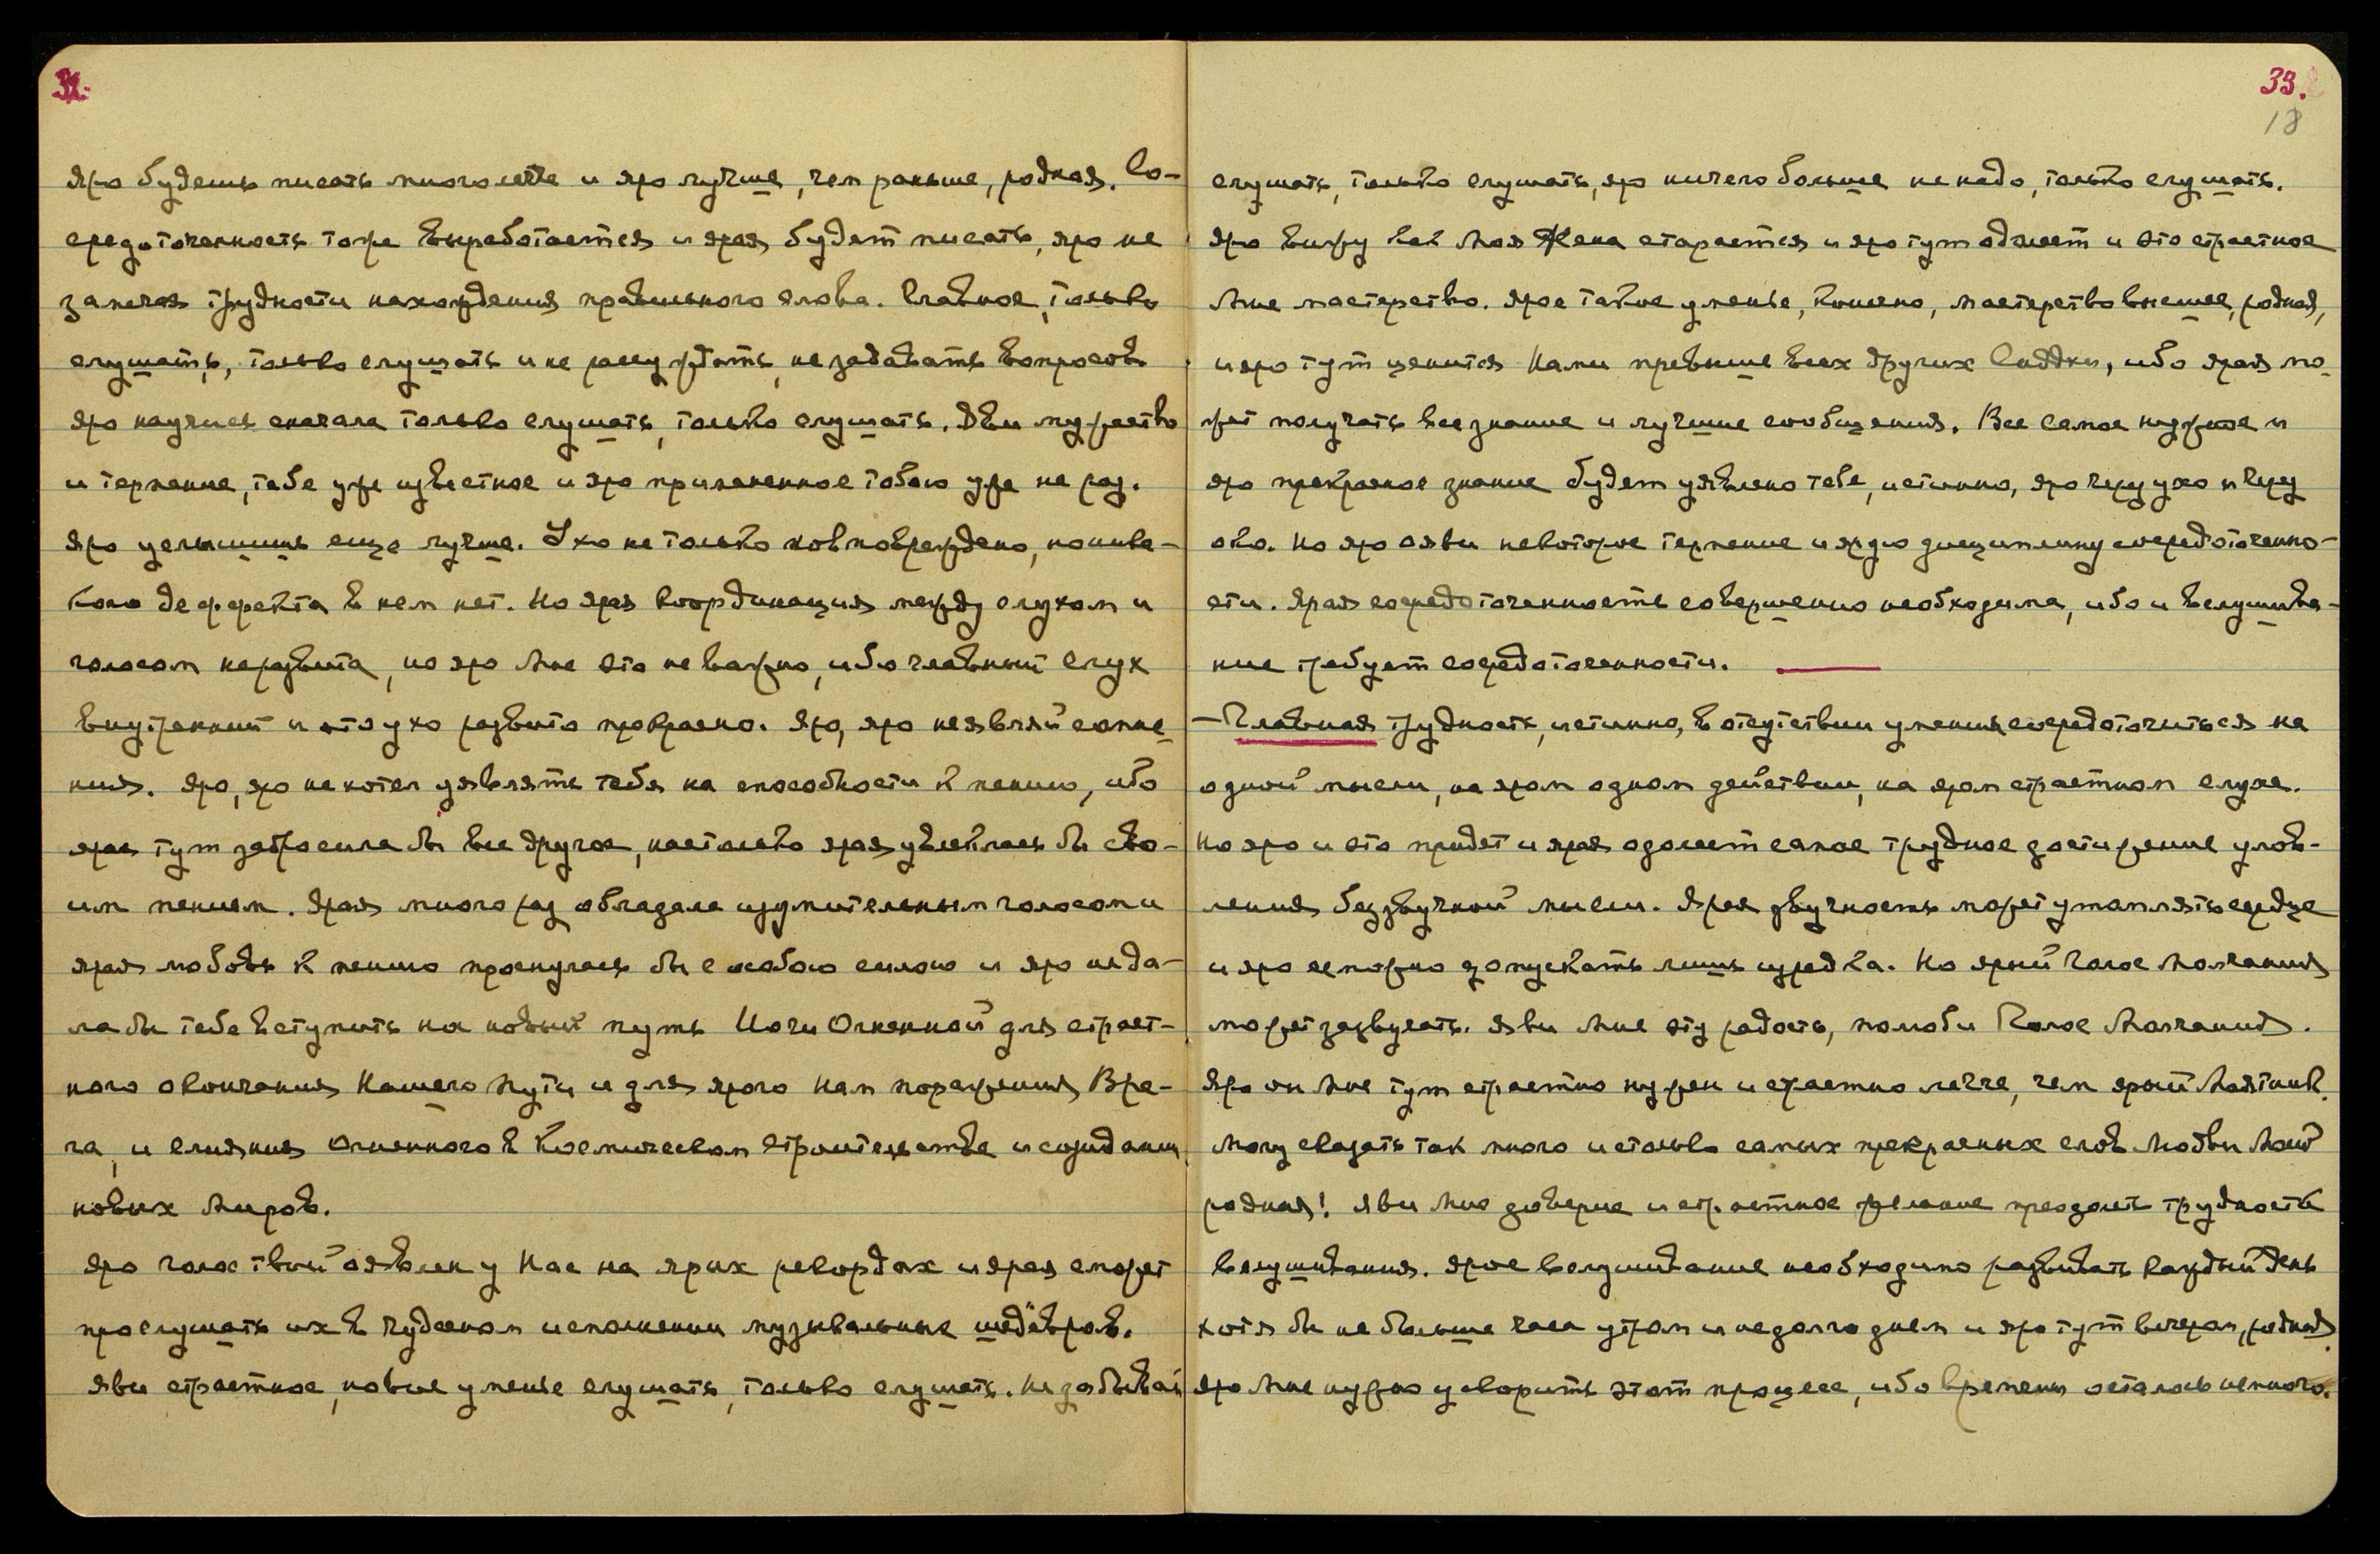 32.
Яро будешь писать много легче и яро лучше, чем раньше, родная. Со-
средоточенность тоже выработается и ярая будет писать, яро не
замечая трудности нахождения правильного слова. Главное, только
слушать, только слушать и не рассуждать, не задавать вопросов.
Яро научись сначала только слушать, только слушать. Яви мужество
и терпение, тебе уже известное и яро примененное тобою уже не раз.
Яро услышишь еще лучше. Ухо не только не повреждено, но ника-
кого деффекта в нем нет. Но ярая координация между слухом и
голосом неразвита, но яро Мне это не важно, ибо главный слух
внутренний и это ухо развито прекрасно. Яро, яро не являй сомне-
ния. Яро, яро не хотел уявлять тебя на способности к пению, ибо
ярая тут забросила бы все другое, настолько ярая увлеклась бы сво-
им пением. Ярая много раз обладала изумительным голосом и
ярая любовь к пению проснулась бы с особою силою и яро не да-
ла бы тебе вступить на новый путь Йоги Огненной для страст-
ного окончания Нашего Пути и для ярого Нам поражения Вра-
га, и слияния Огненного в Космическом Строительстве и созидании
новых Миров.
Яро голос твой оявлен у Нас на ярых рекордах и ярая сможет
прослушать их в чудесном исполнении музыкальных шедёвров.
Яви страстное, новое уменье слушать, только слушать. Не забывай
33.
18
слушать, только слушать, яро ничего больше не надо, только слушать.
Яро вижу как Моя Жена старается и яро тут одолеет и это страстное
Мне мастерство. Ярое такое уменье, конечно, мастерство высшее, родная,
и яро тут ценится Нами превыше всех других Сиддхи, ибо ярая мо-
жет получать все знание и лучшие сообщения. Все самое нужное и
яро прекрасное знание будет уявлено тебе, истинно, яро через ухо и через
око. Но яроояви некоторое терпение и ярую дисциплину сосредоточенно-
сти. Ярая сосредоточенность совершенно необходима, ибо и вслушива-
ние требует сосредоточенности.
— Главная трудность, истинно, в отсутствии умения сосредоточиться на
одной мысли, на яром одном действии, на яром страстном слухе.
Но яро и это придет и ярая одолеет самое трудное достижение улов-
ления беззвучной мысли. Ярая звучность может утомлять сердце
и яро можно допускать лишь изредка. Но ярый Голос Молчания
может зазвучать. Яви Мне эту радость, полюби Голос Молчания.
Яро он Мне тут страстно нужен и страстно легче, чем ярый Маятник.
Могу сказать так много и столько самых прекрасных слов Любви Моей
родная! Яви Мне доверие и страстное желание преодолеть трудность
вслушивания. Ярое вслушивание необходимо развивать каждый день
хотя бы не больше часа утром и недолго днем и яро тут вечером, родная.
Яро Мне нужно ускорить этот процесс, ибо времени осталось немного.